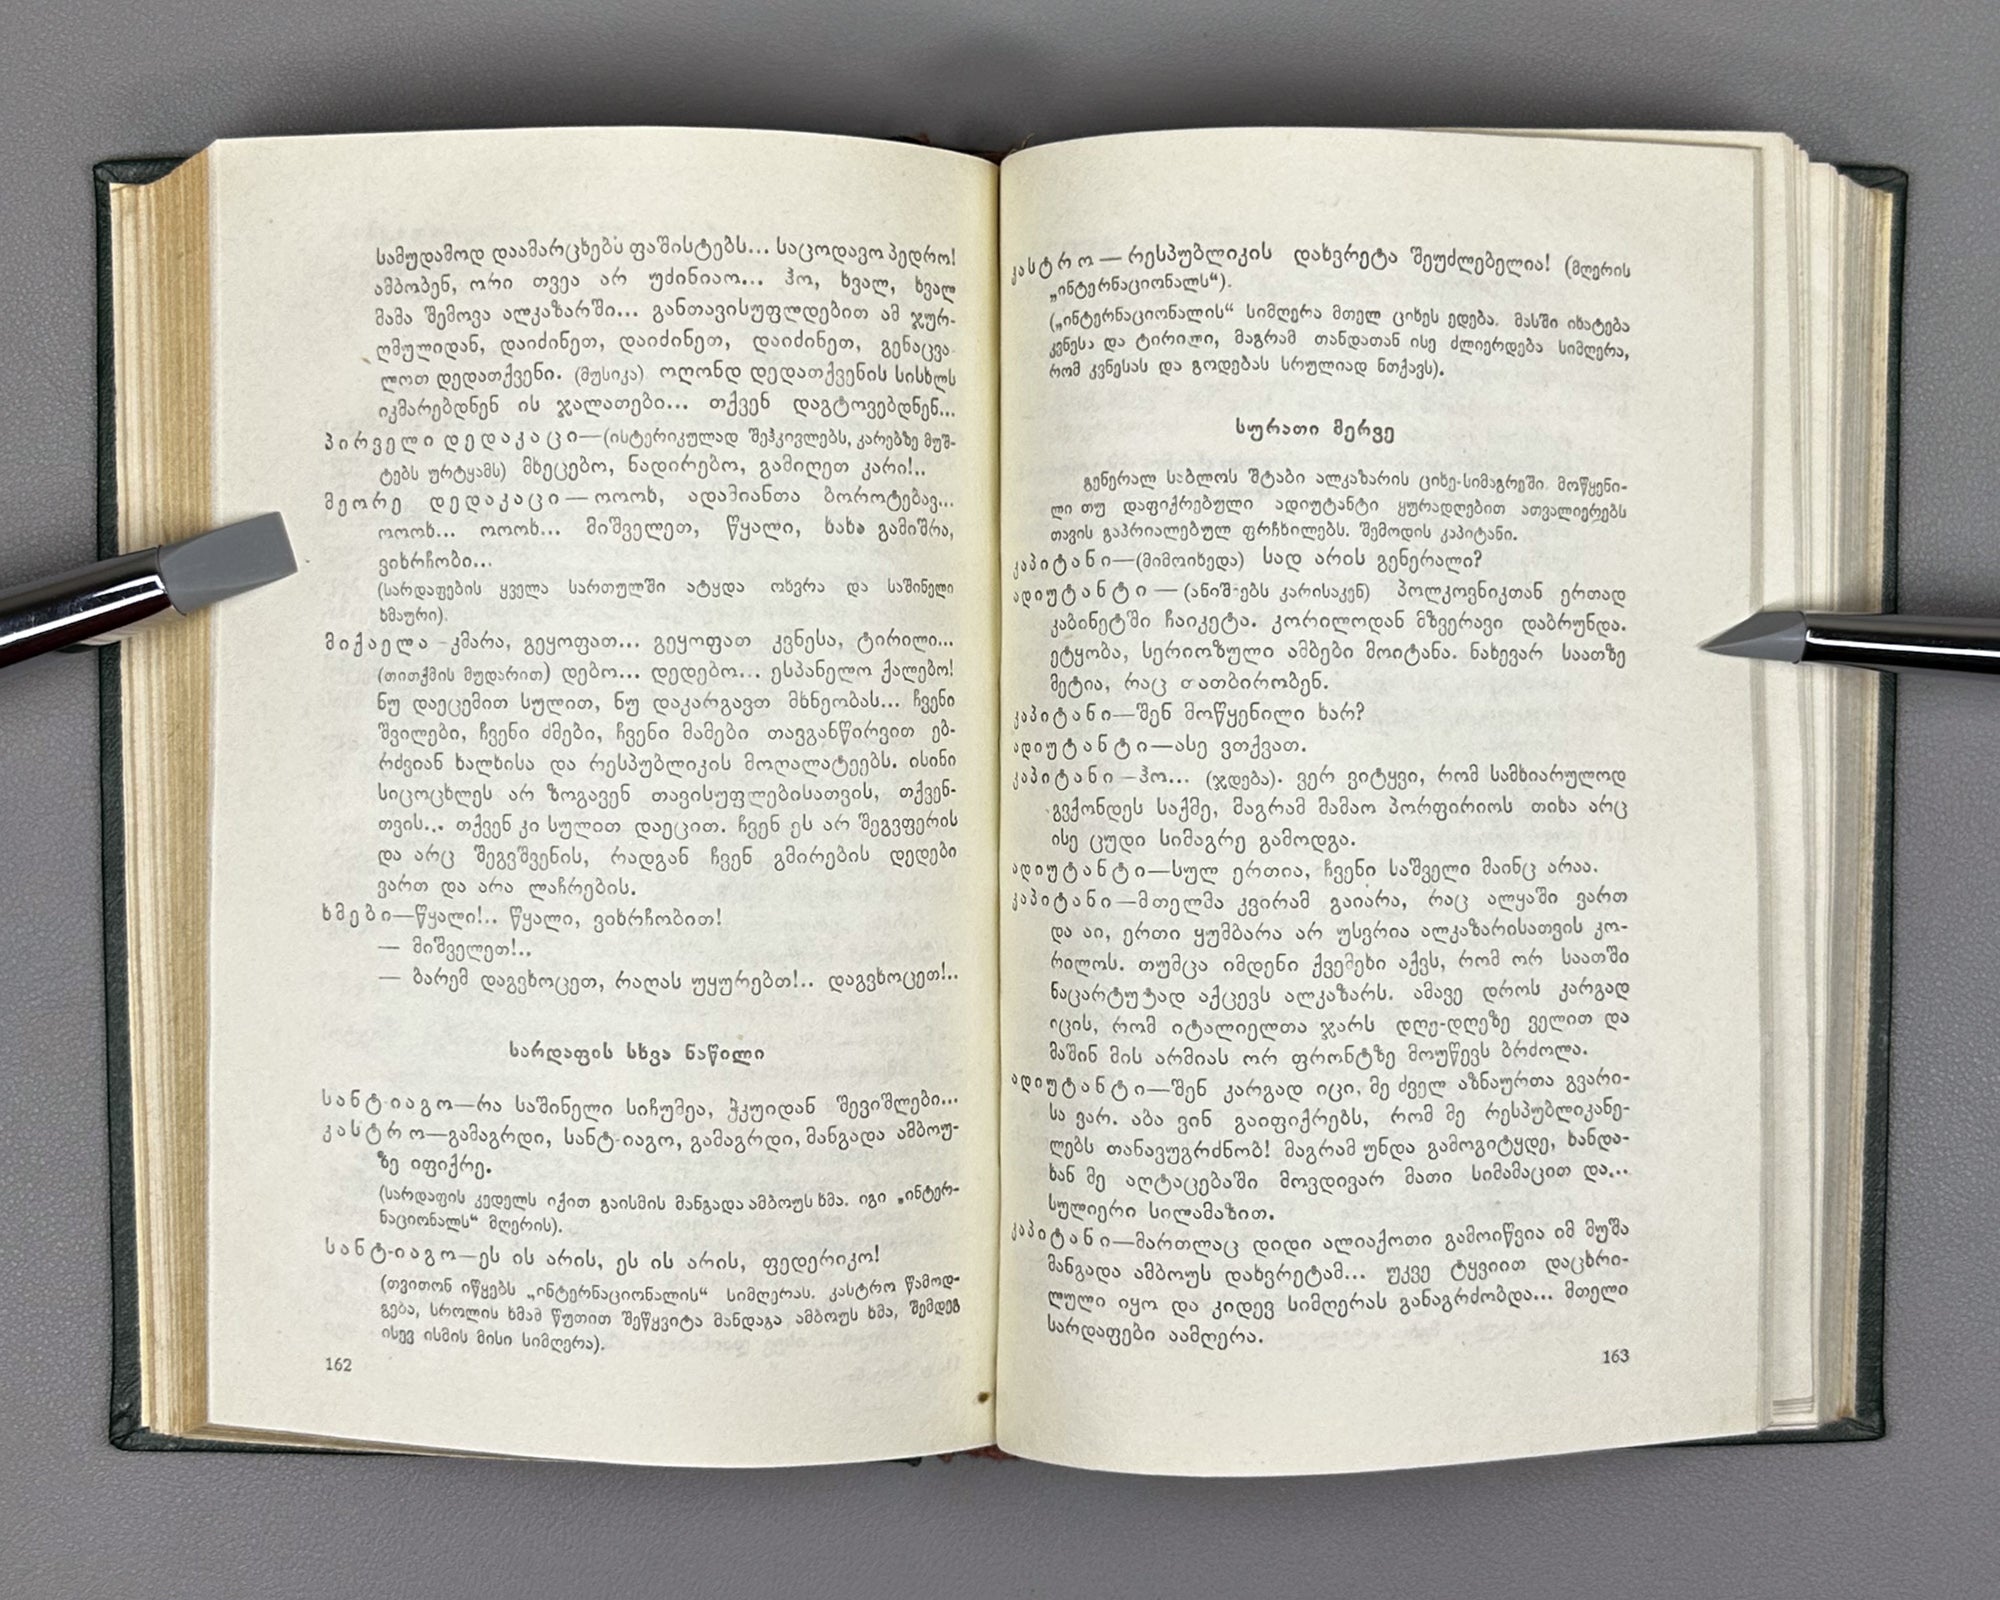 სამუდამოდ დაამარცხებს ფაშისტებს... საცოდავო პედრო!
ამბობენ, ორი თვეა არ უძინიაო... ჰო, ხვალ, ხვალ
მამა შემოვა ალკაზარში... განთავისუფლდებით ამ ჯურ-
ღმულიდან, დაიძინეთ, დაიძინეთ, დაიძინეთ, გენაცვა
ლოთ დედათქვენი. (მუსიკა) ოღონდ დედათქვენის სისხლს
იკმარებდნენ ის ჯალათები... თქვენ დაგტოვებდნენ...
პირველი დედაკაცი—(ისტერიკულად შეჰკივლებს, კარებზე მუშ-
ტებს ურტყამს) მხეცებო, ნადირებო, გამიღეთ კარი!..
მეორე დედაკაცი—ოოოხ, ადამიანთა ბოროტებავ...
ოოოხ... ოოოხ... მიშველეთ, წყალი, ხახა გამიშრა,
ვიხრჩობი...
(სარდაფების ყველა სართულში ატყდა ოხვრა და საშინელი
ხმაური).
მიქაელა -კმარა, გეყოფათ... გეყოფათ კვნესა, ტირილი...
(თითქმის მუდარით) დებო... დედებო... ესპანელო ქალებო!
ნუ დაეცემით სულით, ნუ დაკარგავთ მხნეობას... ჩვენი
შვილები, ჩვენი ძმები, ჩვენი მამები თავგანწირვით ებ-
რძვიან ხალხისა და რესპუბლიკის მოღალატეებს. ისინი
სიცოცხლეს არ ზოგავენ თავისუფლებისათვის, თქვენ-
თვის... თქვენ კი სულით დაეცით. ჩვენ ეს არ შეგვფერის
და არც შეგვშვენის, რადგან ჩვენ გმირების დედები
ვართ და არა ლაჩრების.
ხმები—წყალი!.. წყალი, ვიხრჩობით!
— მიშველეთ!..
— ბარემ დაგვხოცეთ, რაღას უყურებთ!.. დაგვხოცეთ!..
სარდაფის სხვა ნაწილი
სანტ-იაგო—რა საშინელი სიჩუმეა, ჭკუიდან შევიშლები...
კასტრო—გამაგრდი, სანტ-იაგო, გამაგრდი, მანგადა ამბოუ-
ზე იფიქრე.
(სარდაფის კედელს იქით გაისმის მანგადა ამბოუს ხმა. იგი „ინტერ-
ნაციონალს“ მღერის).
სანტ-იაგო—ეს ის არის, ეს ის არის, ფედერიკო!
(თვითონ იწყებს „ინტერნაციონალის“ სიმღერას. კასტრო წამოდ-
გება, სროლის ხმამ წუთით შეწყვიტა მანდაგა ამბოუს ხმა, შემდეგ
ისევ ისმის მისი სიმღერა).
162
კასტრო—რესპუბლიკის დახვრეტა შეუძლებელია! (მღერის
„ინტერნაციონალს“).
(„ინტერნაციონალის“ სიმღერა მთელ ციხეს ედება. მასში იხატება
კვნესა და ტირილი, მაგრამ თანდათან ისე ძლიერდება სიმღერა,
რომ კვნესას და გოდებას სრულიად ნთქავს).
სურათი მერვე
გენერალ საბლოს შტაბი ალკაზარის ციხე-სიმაგრეში. მოწყენი-
ლი თუ დაფიქრებული ადიუტანტი ყურადღებით ათვალიერებს
თავის გაპრიალებულ ფრჩხილებს. შემოდის კაპიტანი.
კაპიტანი—(მიმოიხედა) სად არის გენერალი?
ადიუტანტი — (ანიშნებს კარისაკენ) პოლკოვნიკთან ერთად
კაბინეტში ჩაიკეტა. კორილოდან მზვერავი დაბრუნდა.
ეტყობა, სერიოზული ამბები მოიტანა. ნახევარ საათზე
მეტია, რაც თათბირობენ.
კაპიტანი—შენ მოწყენილი ხარ?
ადიუტანტი—ასე ვთქვათ.
კაპიტანი—ჰო... (ჯდება). ვერ ვიტყვი, რომ სამხიარულოდ
გვქონდეს საქმე, მაგრამ მამაო პორფირიოს თიხა არც
ისე ცუდი სიმაგრე გამოდგა.
ადიუტანტი—სულ ერთია, ჩვენი საშველი მაინც არაა.
კაპიტანი—მთელმა კვირამ გაიარა, რაც ალყაში ვართ
და აი, ერთი ყუმბარა არ უსვრია ალკაზარისათვის კო-
რილოს. თუმცა იმდენი ქვემეხი აქვს, რომ ორ საათში
ნაცარტუტად აქცევს ალკაზარს. ამავე დროს კარგად
იცის, რომ იტალიელთა ჯარს დღე-დღეზე ველით და
მაშინ მის არმიას ორ ფრონტზე მოუწევს ბრძოლა.
ადიუტანტი—შენ კარგად იცი, მე ძველ აზნაურთა გვარი-
სა ვარ. აბა ვინ გაიფიქრებს, რომ მე რესპუბლიკანე-
ლებს თანავუგრძნობ! მაგრამ უნდა გამოგიტყდე, ხანდა-
ხან მე აღტაცებაში მოვდივარ მათი სიმამაცით და...
სულიერი სილამაზით.
კაპიტანი—მართლაც დიდი ალიაქოთი გამოიწვია იმ მუშა
მანგადა ამბოუს დახვრეტამ... უკვე ტყვიით დაცხრი-
ლული იყო და კიდევ სიმღერას განაგრძობდა... მთელი
სარდაფები აამღერა.
163